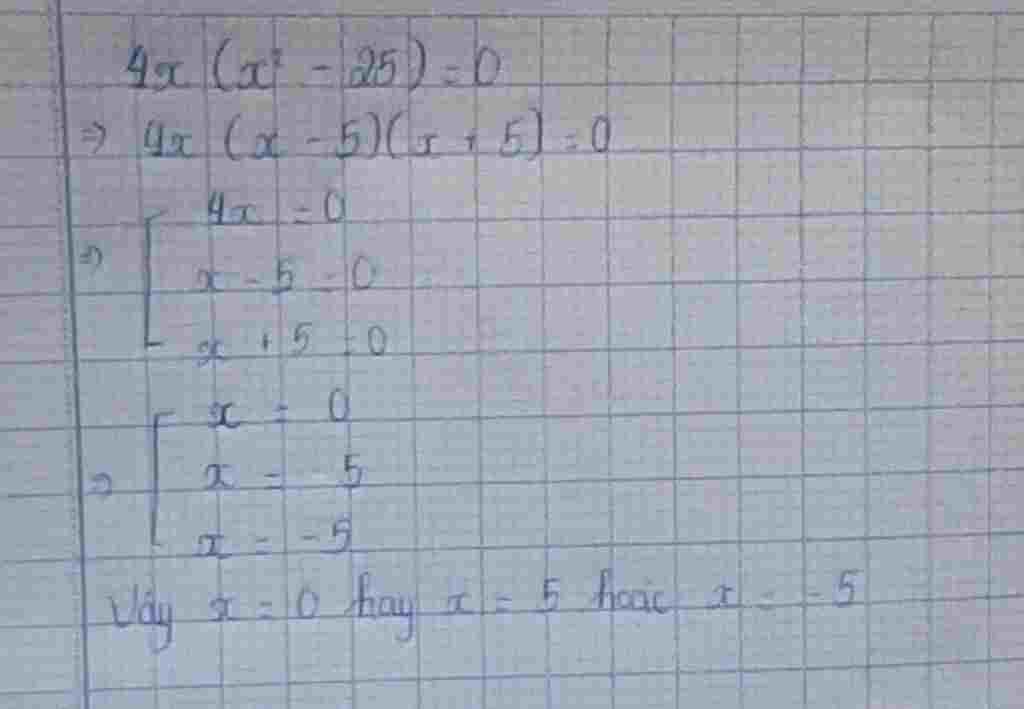 4x (x² - 25) = 0
⇒ 4x (x - 5)(x + 5) = 0
4x = 0
⇒ x - 5 = 0
x + 5 = 0
x = 0
⇒ x = 5
x = -5
Vậy x = 0 hay x = 5 hoặc x = -5